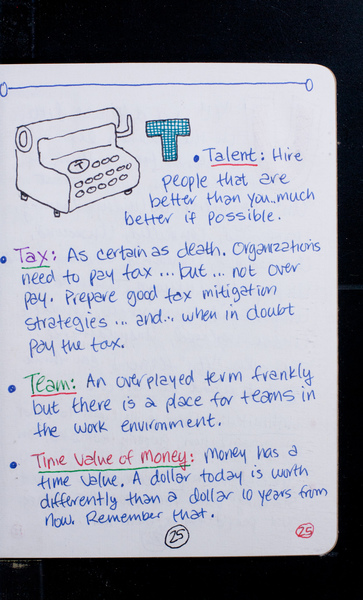 T
T
• Talent: Hire
people that are
better than you...much
better if possible.
• Tax: As certain as death. Organizations
need to pay tax ... but ... not over
pay. Prepare good tax mitigation
strategies ... and... when in doubt
pay the tax.
• Team: An overplayed term frankly
but there is a place for teams in
the work environment.
• Time Value of Money: Money has a
time value. A dollar today is worth
differently than a dollar 10 years from
now. Remember that.
25
25